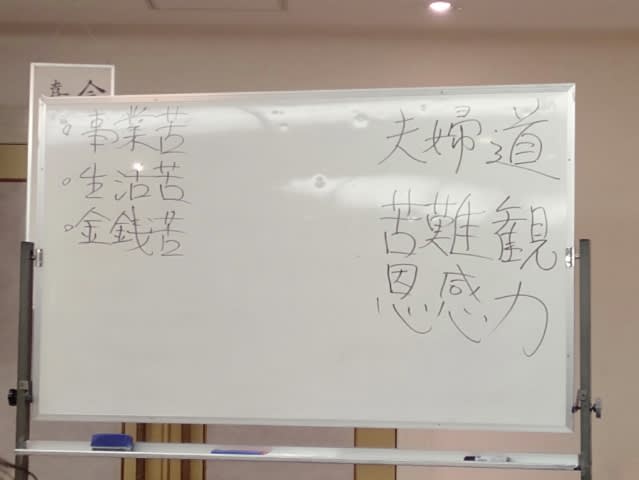 。事業苦
。生活苦
。金銭苦
夫婦道
苦難観
恩感力